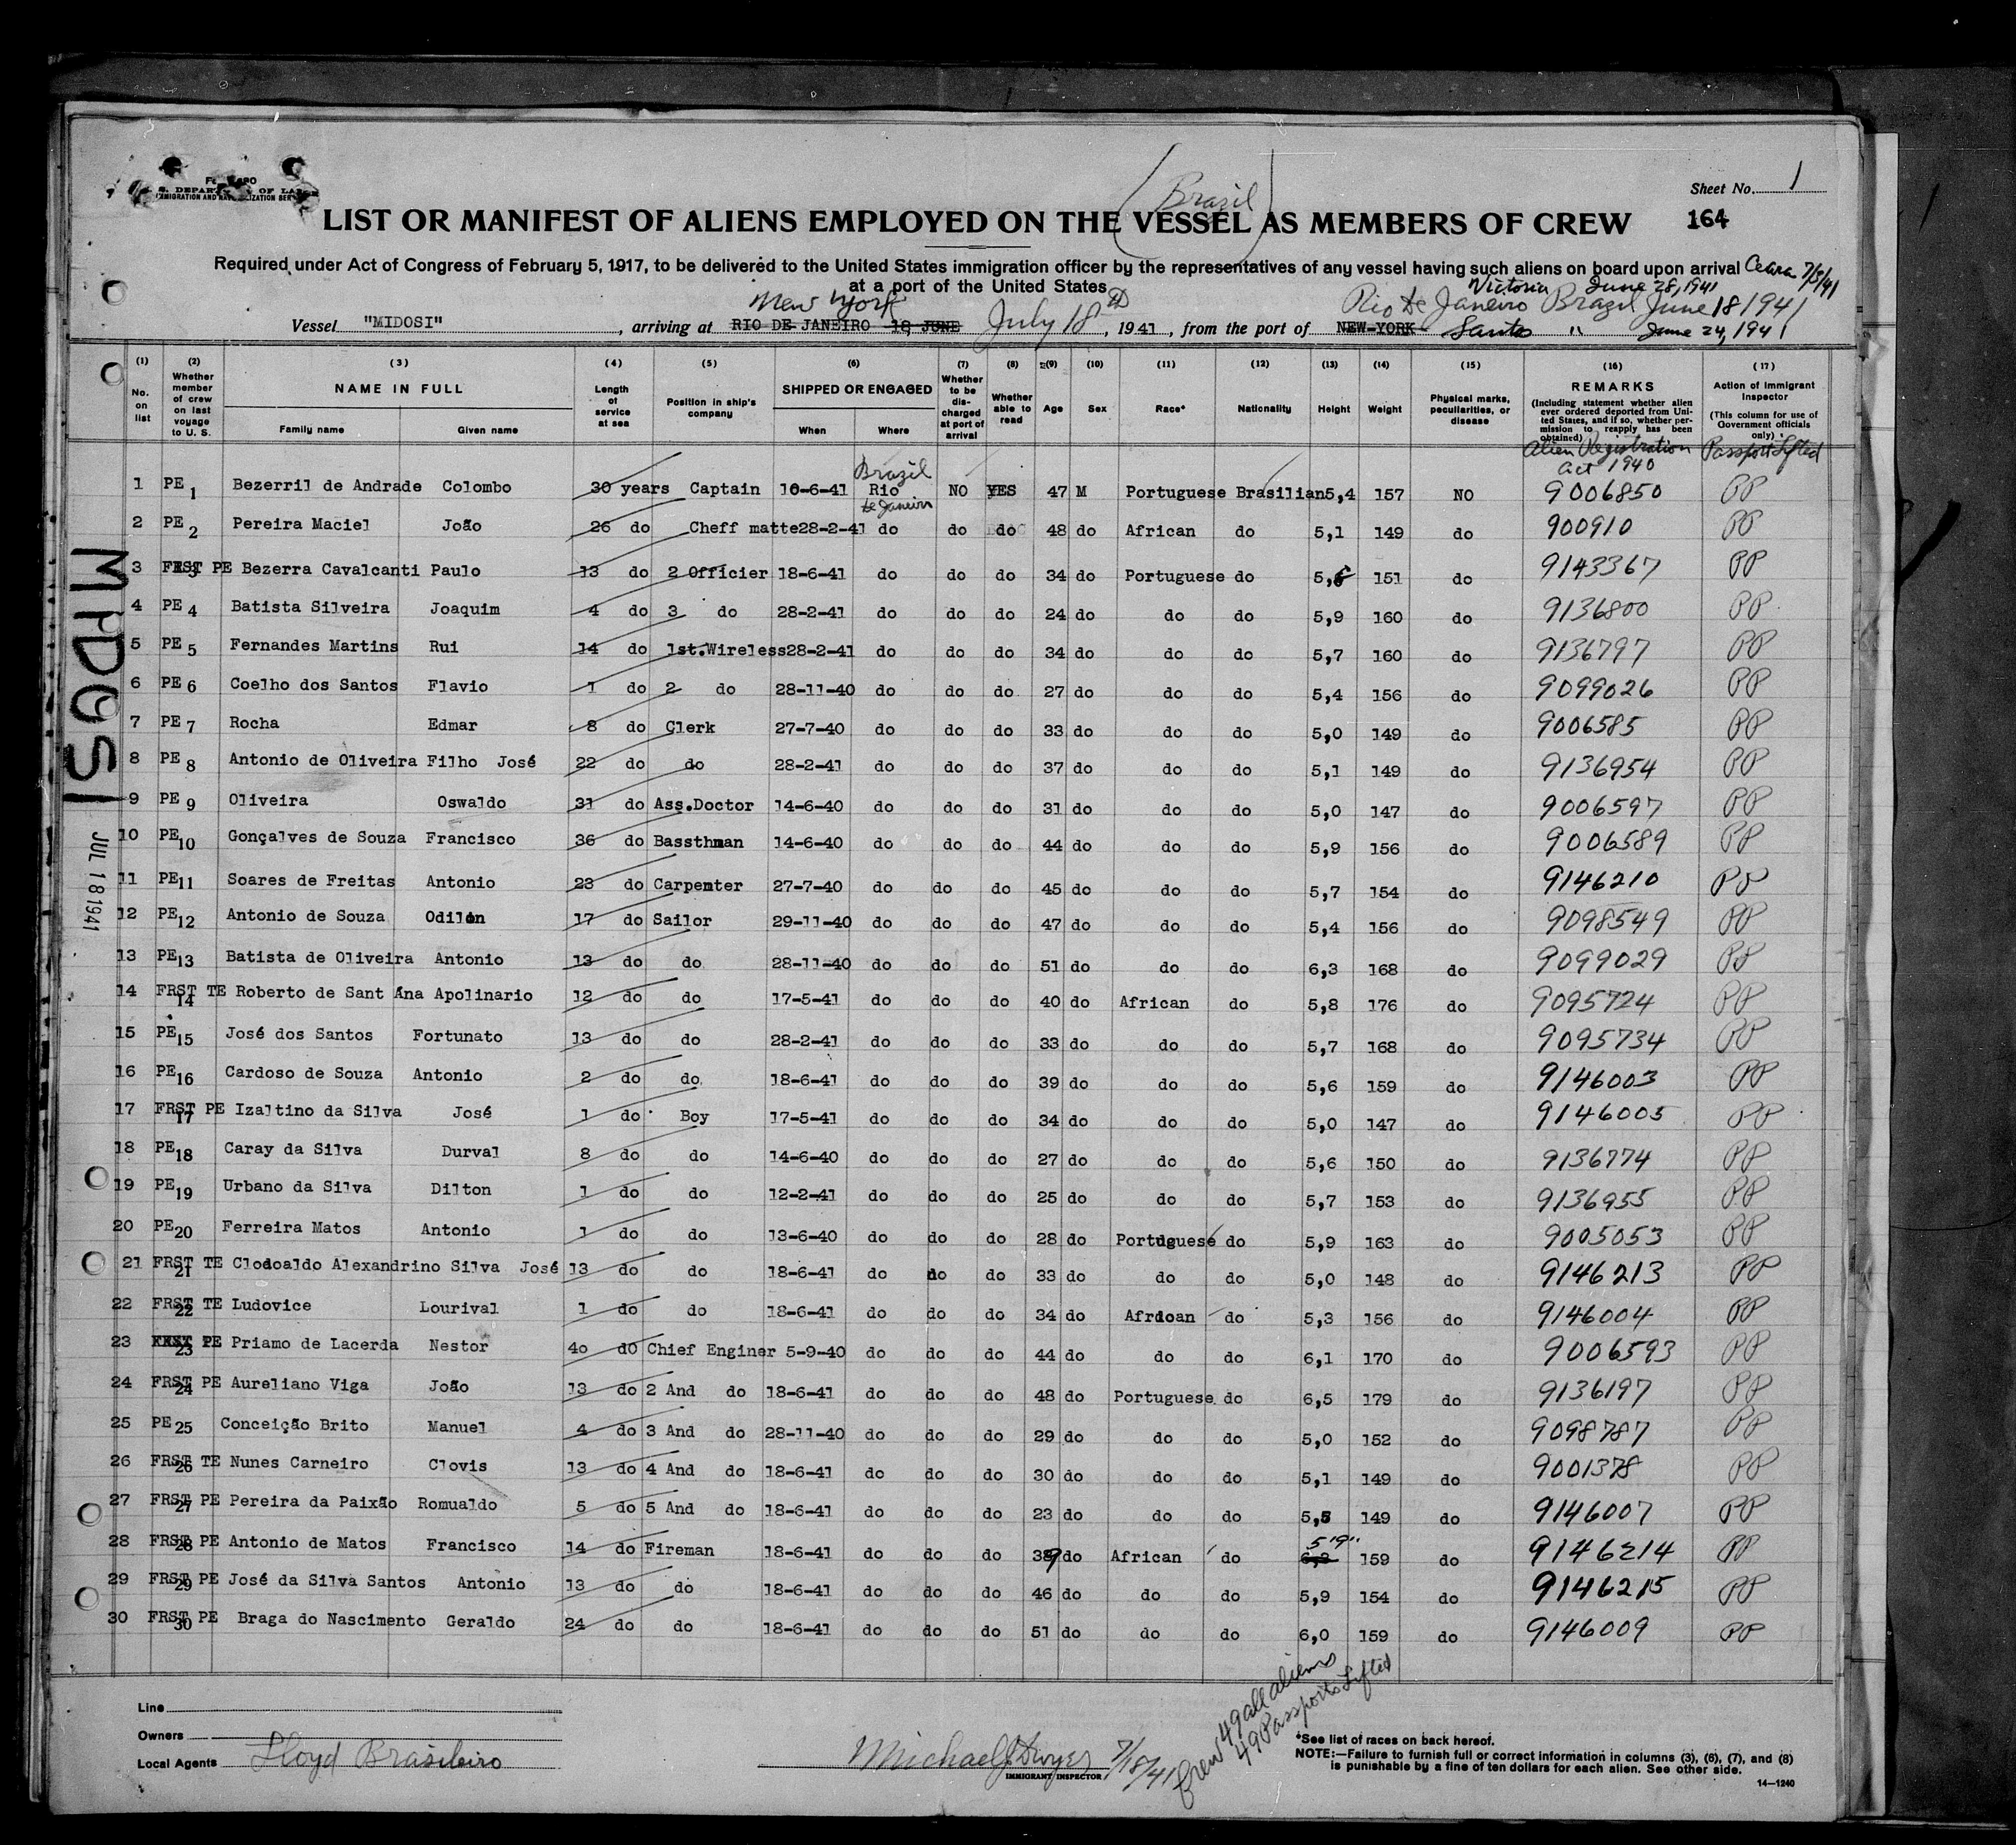 Sheet No. 1
(Brazil)
LIST OR MANIFEST OF ALIENS EMPLOYED ON THE VESSEL AS MEMBERS OF CREW
164
Required under Act of Congress of February 5, 1917, to be delivered to the United States immigration officer by the representatives of any vessel having such aliens on board upon arrival Ceara 7/5/41
at a port of the United States Victoria June 28, 1941
New York Rio de Janeiro Brazil June 18 1941
Vessel "MIDOSI", arriving at RIO DE JANEIRO 18 JUNE July 18th, 1941, from the port of NEW-YORK Santos " June 24, 1941
(1) (2) (3) (4) (5) (6) (7) (8) (9) (10) (11) (12) (13) (14) (15) (16) (17)
No. on list
Whether member of crew on last voyage to U. S.
NAME IN FULL
Family name Given name
Length of service at sea
Position in ship's company
SHIPPED OR ENGAGED
When Where
Whether to be discharged at port of arrival
Whether able to read
Age
Sex
Race*
Nationality
Height
Weight
Physical marks, peculiarities, or disease
REMARKS
(Including statement whether alien ever ordered deported from United States, and if so, whether permission to reapply has been obtained)
Action of Immigrant Inspector
(This column for use of Government officials only)
Alien Registration Act 1940 Passport Lifted
1 PE 1 Bezerril de Andrade Colombo 30 years Captain 10-6-41 Brazil Rio de Janeiro NO YES 47 M Portuguese Brasilian 5,4 157 NO 9006850 PP
2 PE 2 Pereira Maciel João 26 do Cheff matte 28-2-41 do do do 48 do African do 5,1 149 do 900910 PP
3 FRST PE 3 Bezerra Cavalcanti Paulo 13 do 2 Officier 18-6-41 do do do 34 do Portuguese do 5,6 151 do 9143367 PP
4 PE 4 Batista Silveira Joaquim 4 do 3 do 28-2-41 do do do 24 do do do 5,9 160 do 9136800 PP
5 PE 5 Fernandes Martins Rui 14 do 1st.Wireless 28-2-41 do do do 34 do do do 5,7 160 do 9136797 PP
6 PE 6 Coelho dos Santos Flavio 1 do 2 do 28-11-40 do do do 27 do do do 5,4 156 do 9099026 PP
7 PE 7 Rocha Edmar 8 do Clerk 27-7-40 do do do 33 do do do 5,0 149 do 9006585 PP
8 PE 8 Antonio de Oliveira Filho José 22 do do 28-2-41 do do do 37 do do do 5,1 149 do 9136954 PP
9 PE 9 Oliveira Oswaldo 31 do Ass.Doctor 14-6-40 do do do 31 do do do 5,0 147 do 9006597 PP
10 PE 10 Gonçalves de Souza Francisco 36 do Bassthman 14-6-40 do do do 44 do do do 5,9 156 do 9006589 PP
11 PE 11 Soares de Freitas Antonio 23 do Carpenter 27-7-40 do do do 45 do do do 5,7 154 do 9146210 PP
12 PE 12 Antonio de Souza Odilon 17 do Sailor 29-11-40 do do do 47 do do do 5,4 156 do 9098549 PP
13 PE 13 Batista de Oliveira Antonio 13 do do 28-11-40 do do do 51 do do do 6,3 168 do 9099029 PP
14 FRST TE 14 Roberto de Sant Ána Apolinario 12 do do 17-5-41 do do do 40 do African do 5,8 176 do 9095724 PP
15 PE 15 José dos Santos Fortunato 13 do do 28-2-41 do do do 33 do do do 5,7 168 do 9095734 PP
16 PE 16 Cardoso de Souza Antonio 2 do do 18-6-41 do do do 39 do do do 5,6 159 do 9146003 PP
17 FRST PE 17 Izaltino da Silva José 1 do Boy 17-5-41 do do do 34 do do do 5,0 147 do 9146005 PP
18 PE 18 Caray da Silva Durval 8 do do 14-6-40 do do do 27 do do do 5,6 150 do 9136774 PP
19 PE 19 Urbano da Silva Dilton 1 do do 12-2-41 do do do 25 do do do 5,7 153 do 9136955 PP
20 PE 20 Ferreira Matos Antonio 1 do do 13-6-40 do do do 28 do Portuguese do 5,9 163 do 9005053 PP
21 FRST TE 21 Clodoaldo Alexandrino Silva José 13 do do 18-6-41 do do do 33 do do do 5,0 148 do 9146213 PP
22 FRST TE 22 Ludovice Lourival 1 do do 18-6-41 do do do 34 do African do 5,3 156 do 9146004 PP
23 PE 23 Priamo de Lacerda Nestor 40 do Chief Enginer 5-9-40 do do do 44 do do do 6,1 170 do 9006593 PP
24 FRST PE 24 Aureliano Viga João 13 do 2 And do 18-6-41 do do do 48 do Portuguese do 6,5 179 do 9136197 PP
25 PE 25 Conceição Brito Manuel 4 do 3 And do 28-11-40 do do do 29 do do do 5,0 152 do 9098787 PP
26 FRST TE 26 Nunes Carneiro Clovis 13 do 4 And do 18-6-41 do do do 30 do do do 5,1 149 do 9001378 PP
27 FRST PE 27 Pereira da Paixão Romualdo 5 do 5 And do 18-6-41 do do do 23 do do do 5,5 149 do 9146007 PP
28 FRST PE 28 Antonio de Matos Francisco 14 do Fireman 18-6-41 do do do 39 do African do 5'9" 159 do 9146214 PP
29 FRST PE 29 José da Silva Santos Antonio 13 do do 18-6-41 do do do 46 do do do 5,9 154 do 9146215 PP
30 FRST PE 30 Braga do Nascimento Geraldo 24 do do 18-6-41 do do do 51 do do do 6,0 159 do 9146009 PP
MIDOSI
JUL 18 1941
Line
Owners
Local Agents Lloyd Brasileiro
Michael J Dwyer 7/18/41
IMMIGRANT INSPECTOR
Crew 49 all aliens
49 Passports Lifted
*See list of races on back hereof.
NOTE:—Failure to furnish full or correct information in columns (3), (6), (7), and (8)
is punishable by a fine of ten dollars for each alien. See other side.
14—1240